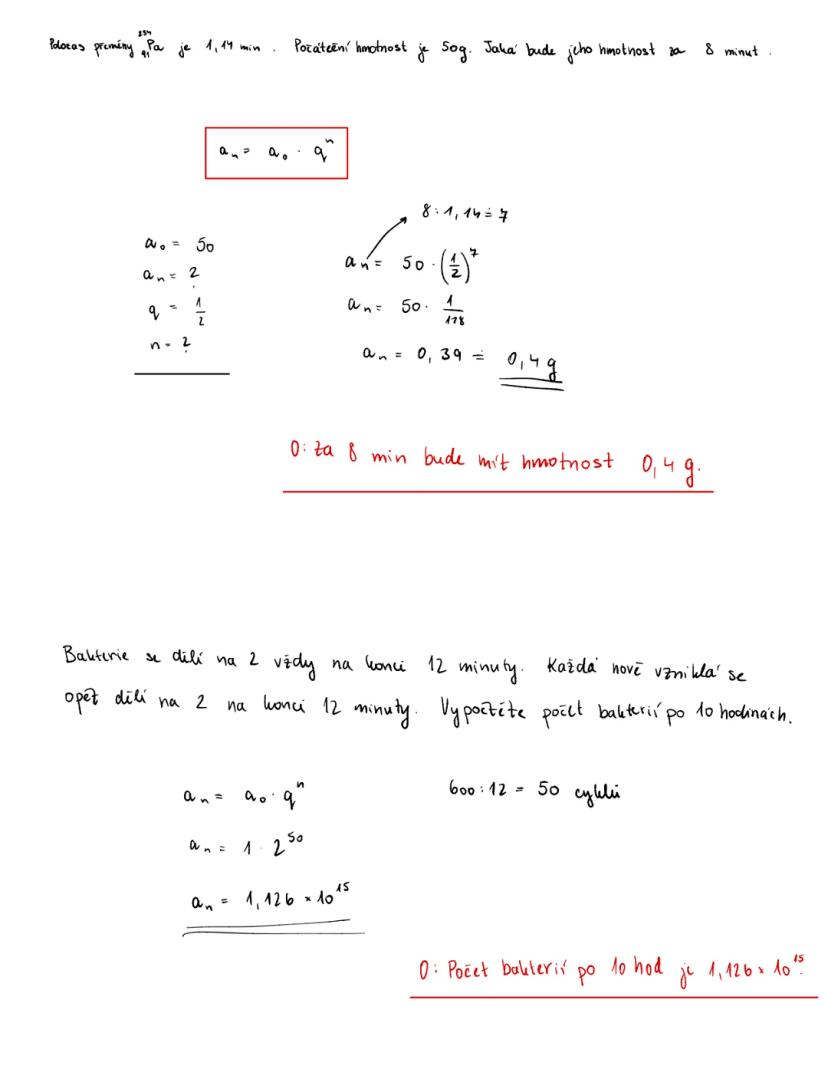 Poločas přeměny ²³⁴₉₁Pa je 1,14 min. Počáteční hmotnost je 50g. Jaká bude jeho hmotnost za 8 minut.
aₙ = a₀ · qⁿ
8 : 1,14 ≐ 7
a₀ = 50
aₙ = ?
q = 1/2
n = ?
aₙ = 50 · (1/2)⁷
aₙ = 50 · 1/128
aₙ = 0,39 ≐ 0,4 g
O: za 8 min bude mít hmotnost 0,4 g.
Bakterie se dělí na 2 vždy na konci 12 minuty. Každá nově vzniklá se
opět dělí na 2 na konci 12 minuty. Vypočtěte počet bakterií po 10 hodinách.
aₙ = a₀ · qⁿ
600 : 12 = 50 cyklů
aₙ = 1 · 2⁵⁰
aₙ = 1,126 × 10¹⁵
O: Počet bakterií po 10 hod je 1,126 × 10¹⁵.